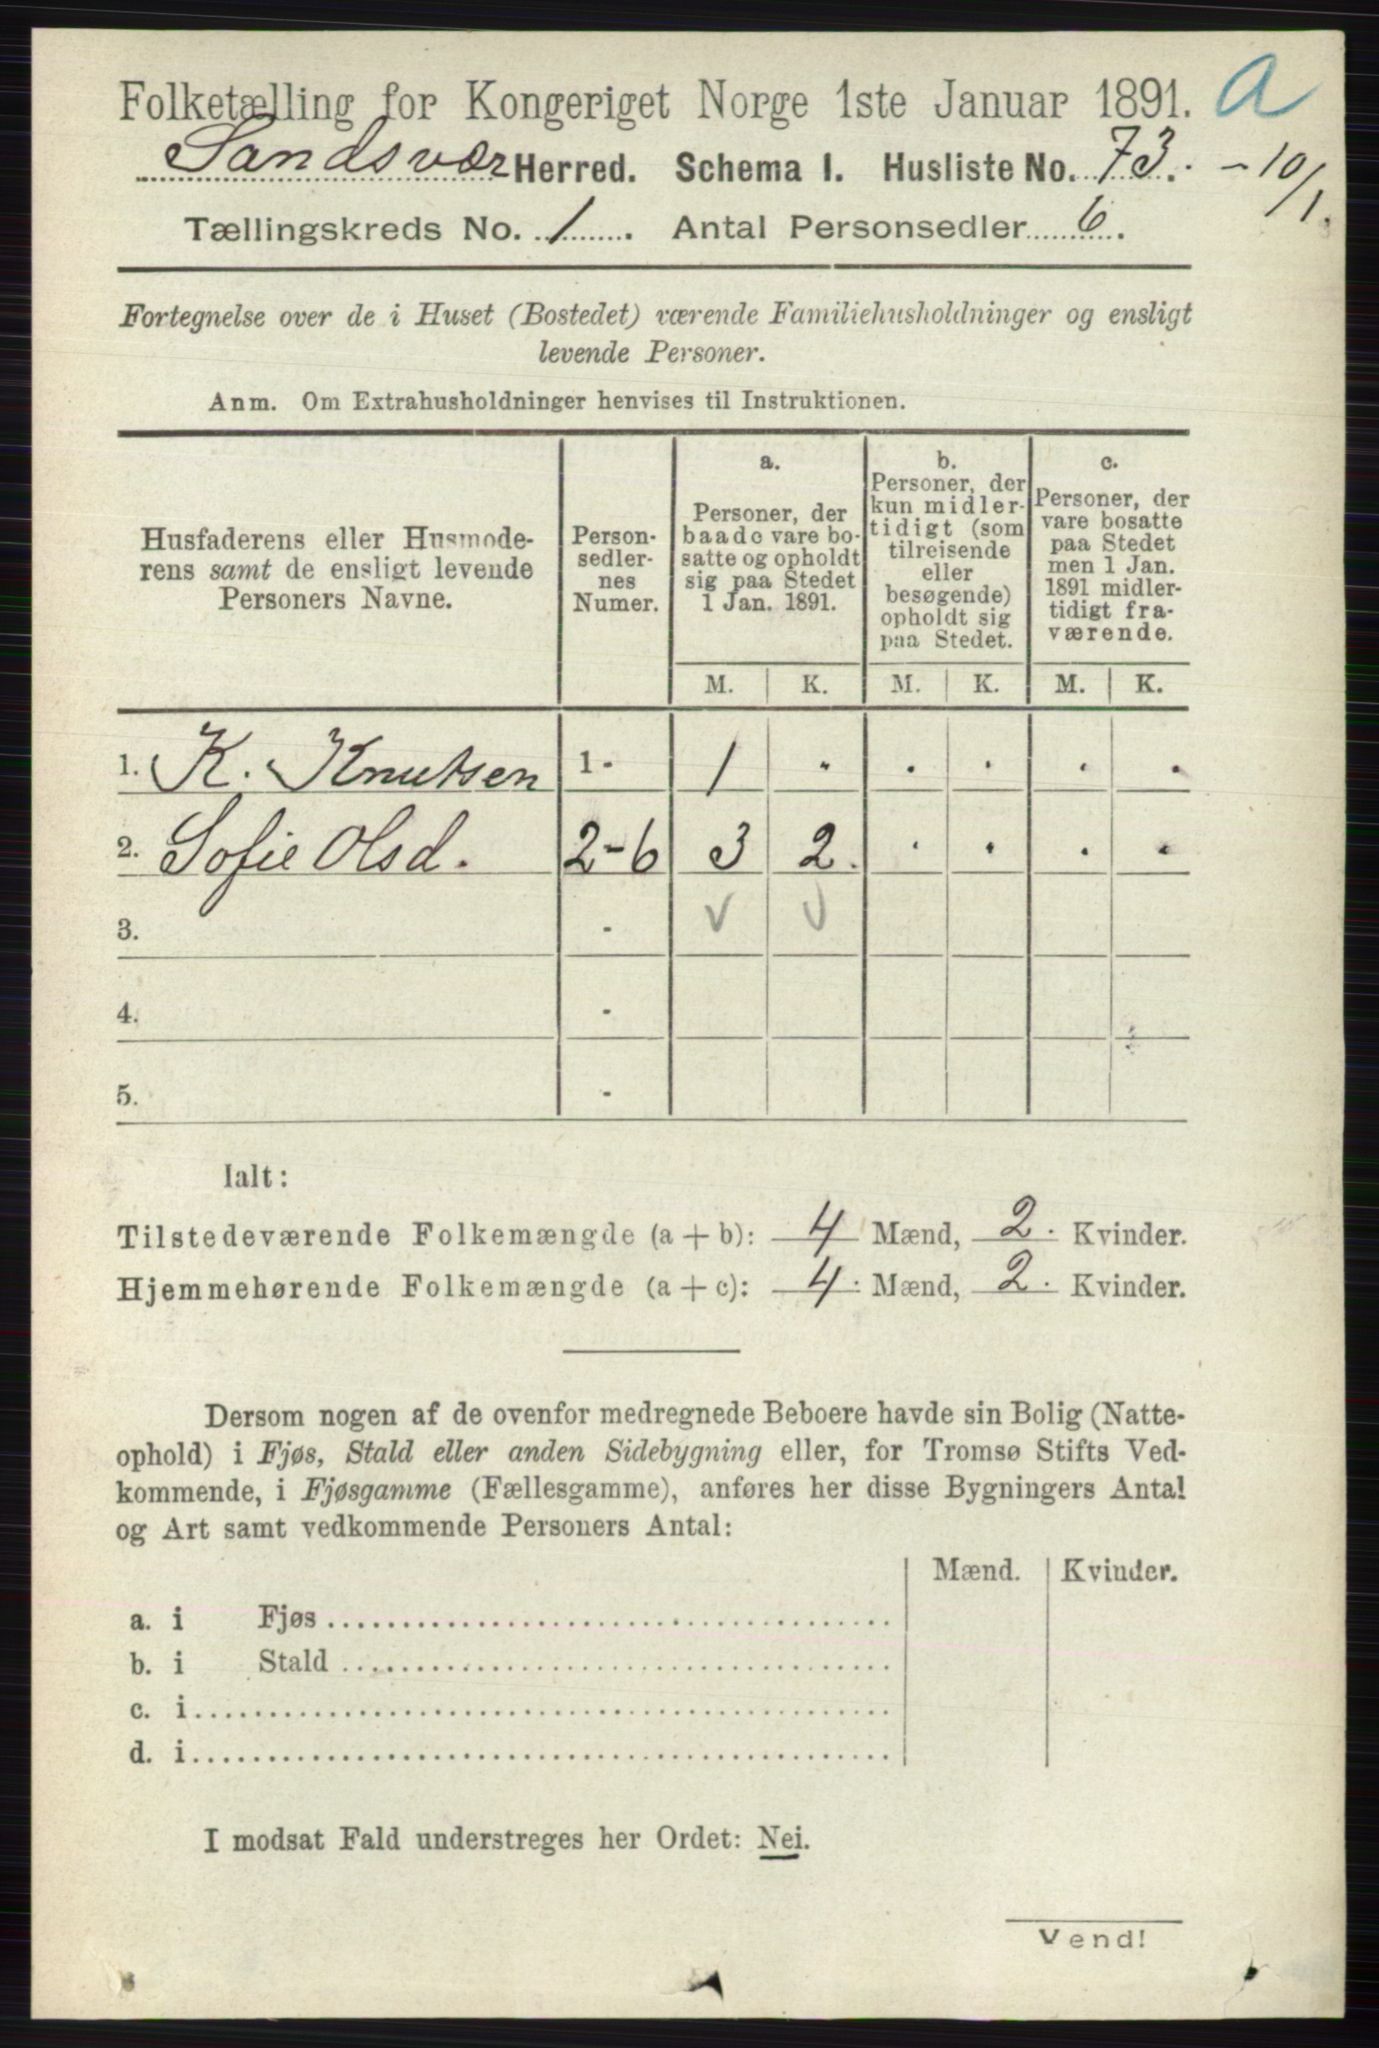 Folketælling for Kongeriget Norge 1ste Januar 1891. a
Sandsvær Herred. Schema I. Husliste No. 73. - 10/1.
Tællingskreds No. 1. Antal Personsedler 6.
Fortegnelse over de i Huset (Bostedet) værende Familiehusholdninger og ensligt
levende Personer.
Anm. Om Extrahusholdninger henvises til Instruktionen.
Husfaderens eller Husmode-
rens samt de ensligt levende
Personers Navne.
Person-
sedler-
nes
Numer.
a.
Personer, der
baade vare bo-
satte og opholdt
sig paa Stedet
1 Jan. 1891.
b.
Personer, der
kun midler-
tidigt (som
tilreisende
eller
besøgende)
opholdt sig
paa Stedet.
c.
Personer, der
vare bosatte
paa Stedet
men 1 Jan.
1891 midler-
tidigt fra-
værende.
M. K. M. K. M. K.
1. K. Knutsen 1 - 1 . . . . .
2. Sofie Olsd. 2-6 3 2. . . . .
3. - v v
4. -
5. -
Ialt:
Tilstedeværende Folkemængde (a + b): 4 Mænd, 2. Kvinder.
Hjemmehørende Folkemængde (a + c): 4. Mænd, 2. Kvinder.
Dersom nogen af de ovenfor medregnede Beboere havde sin Bolig (Natte-
ophold) i Fjøs, Stald eller anden Sidebygning eller, for Tromsø Stifts Ved-
kommende, i Fjøsgamme (Fællesgamme), anføres her disse Bygningers Antal
og Art samt vedkommende Personers Antal:
Mænd. Kvinder.
a. i Fjøs
b. i Stald
c. i
d. i
I modsat Fald understreges her Ordet: Nei.
Vend!